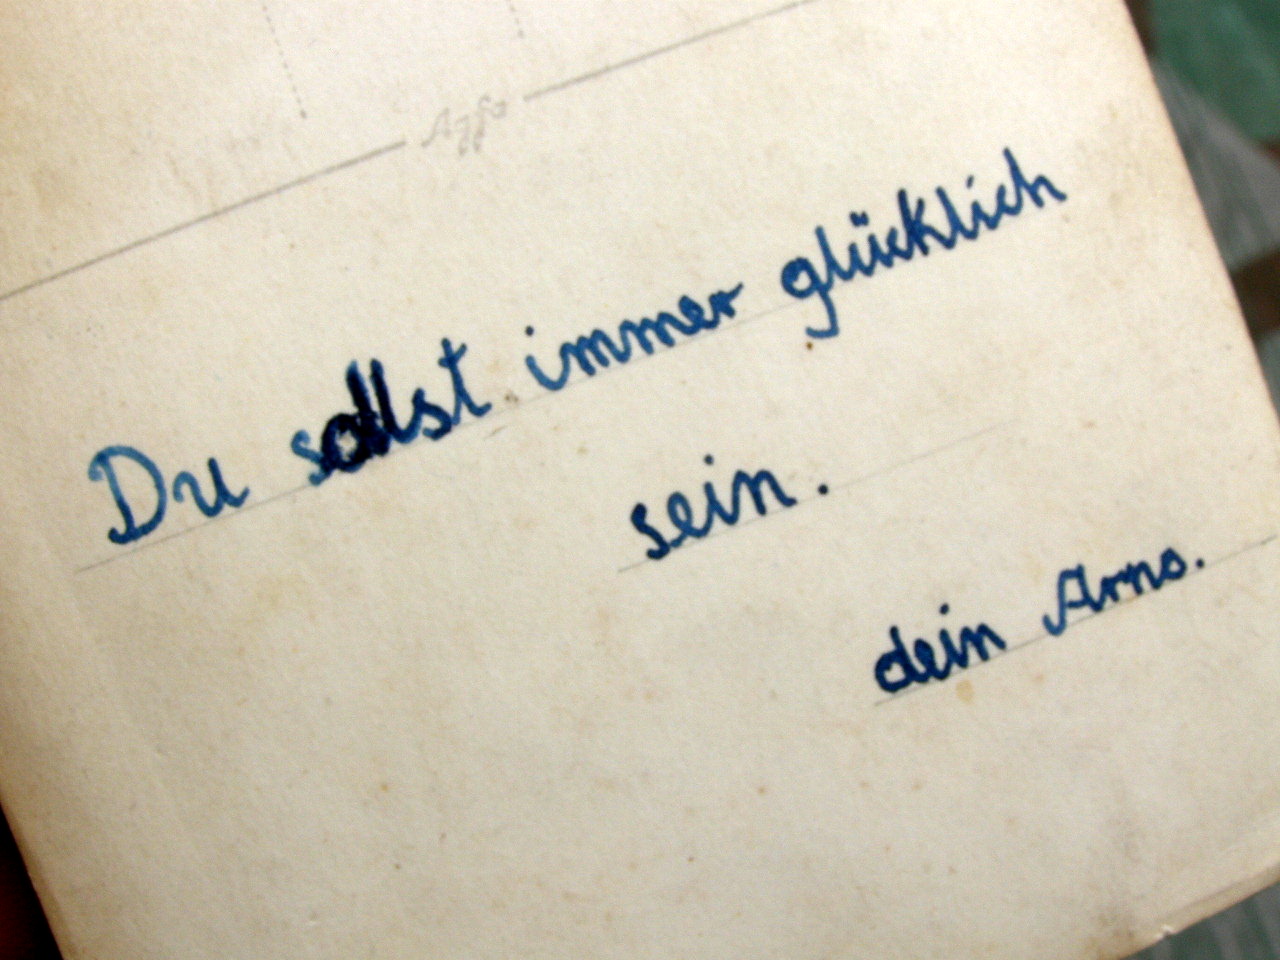 Agfa
Du sollst immer glücklich
sein.
dein Arno.